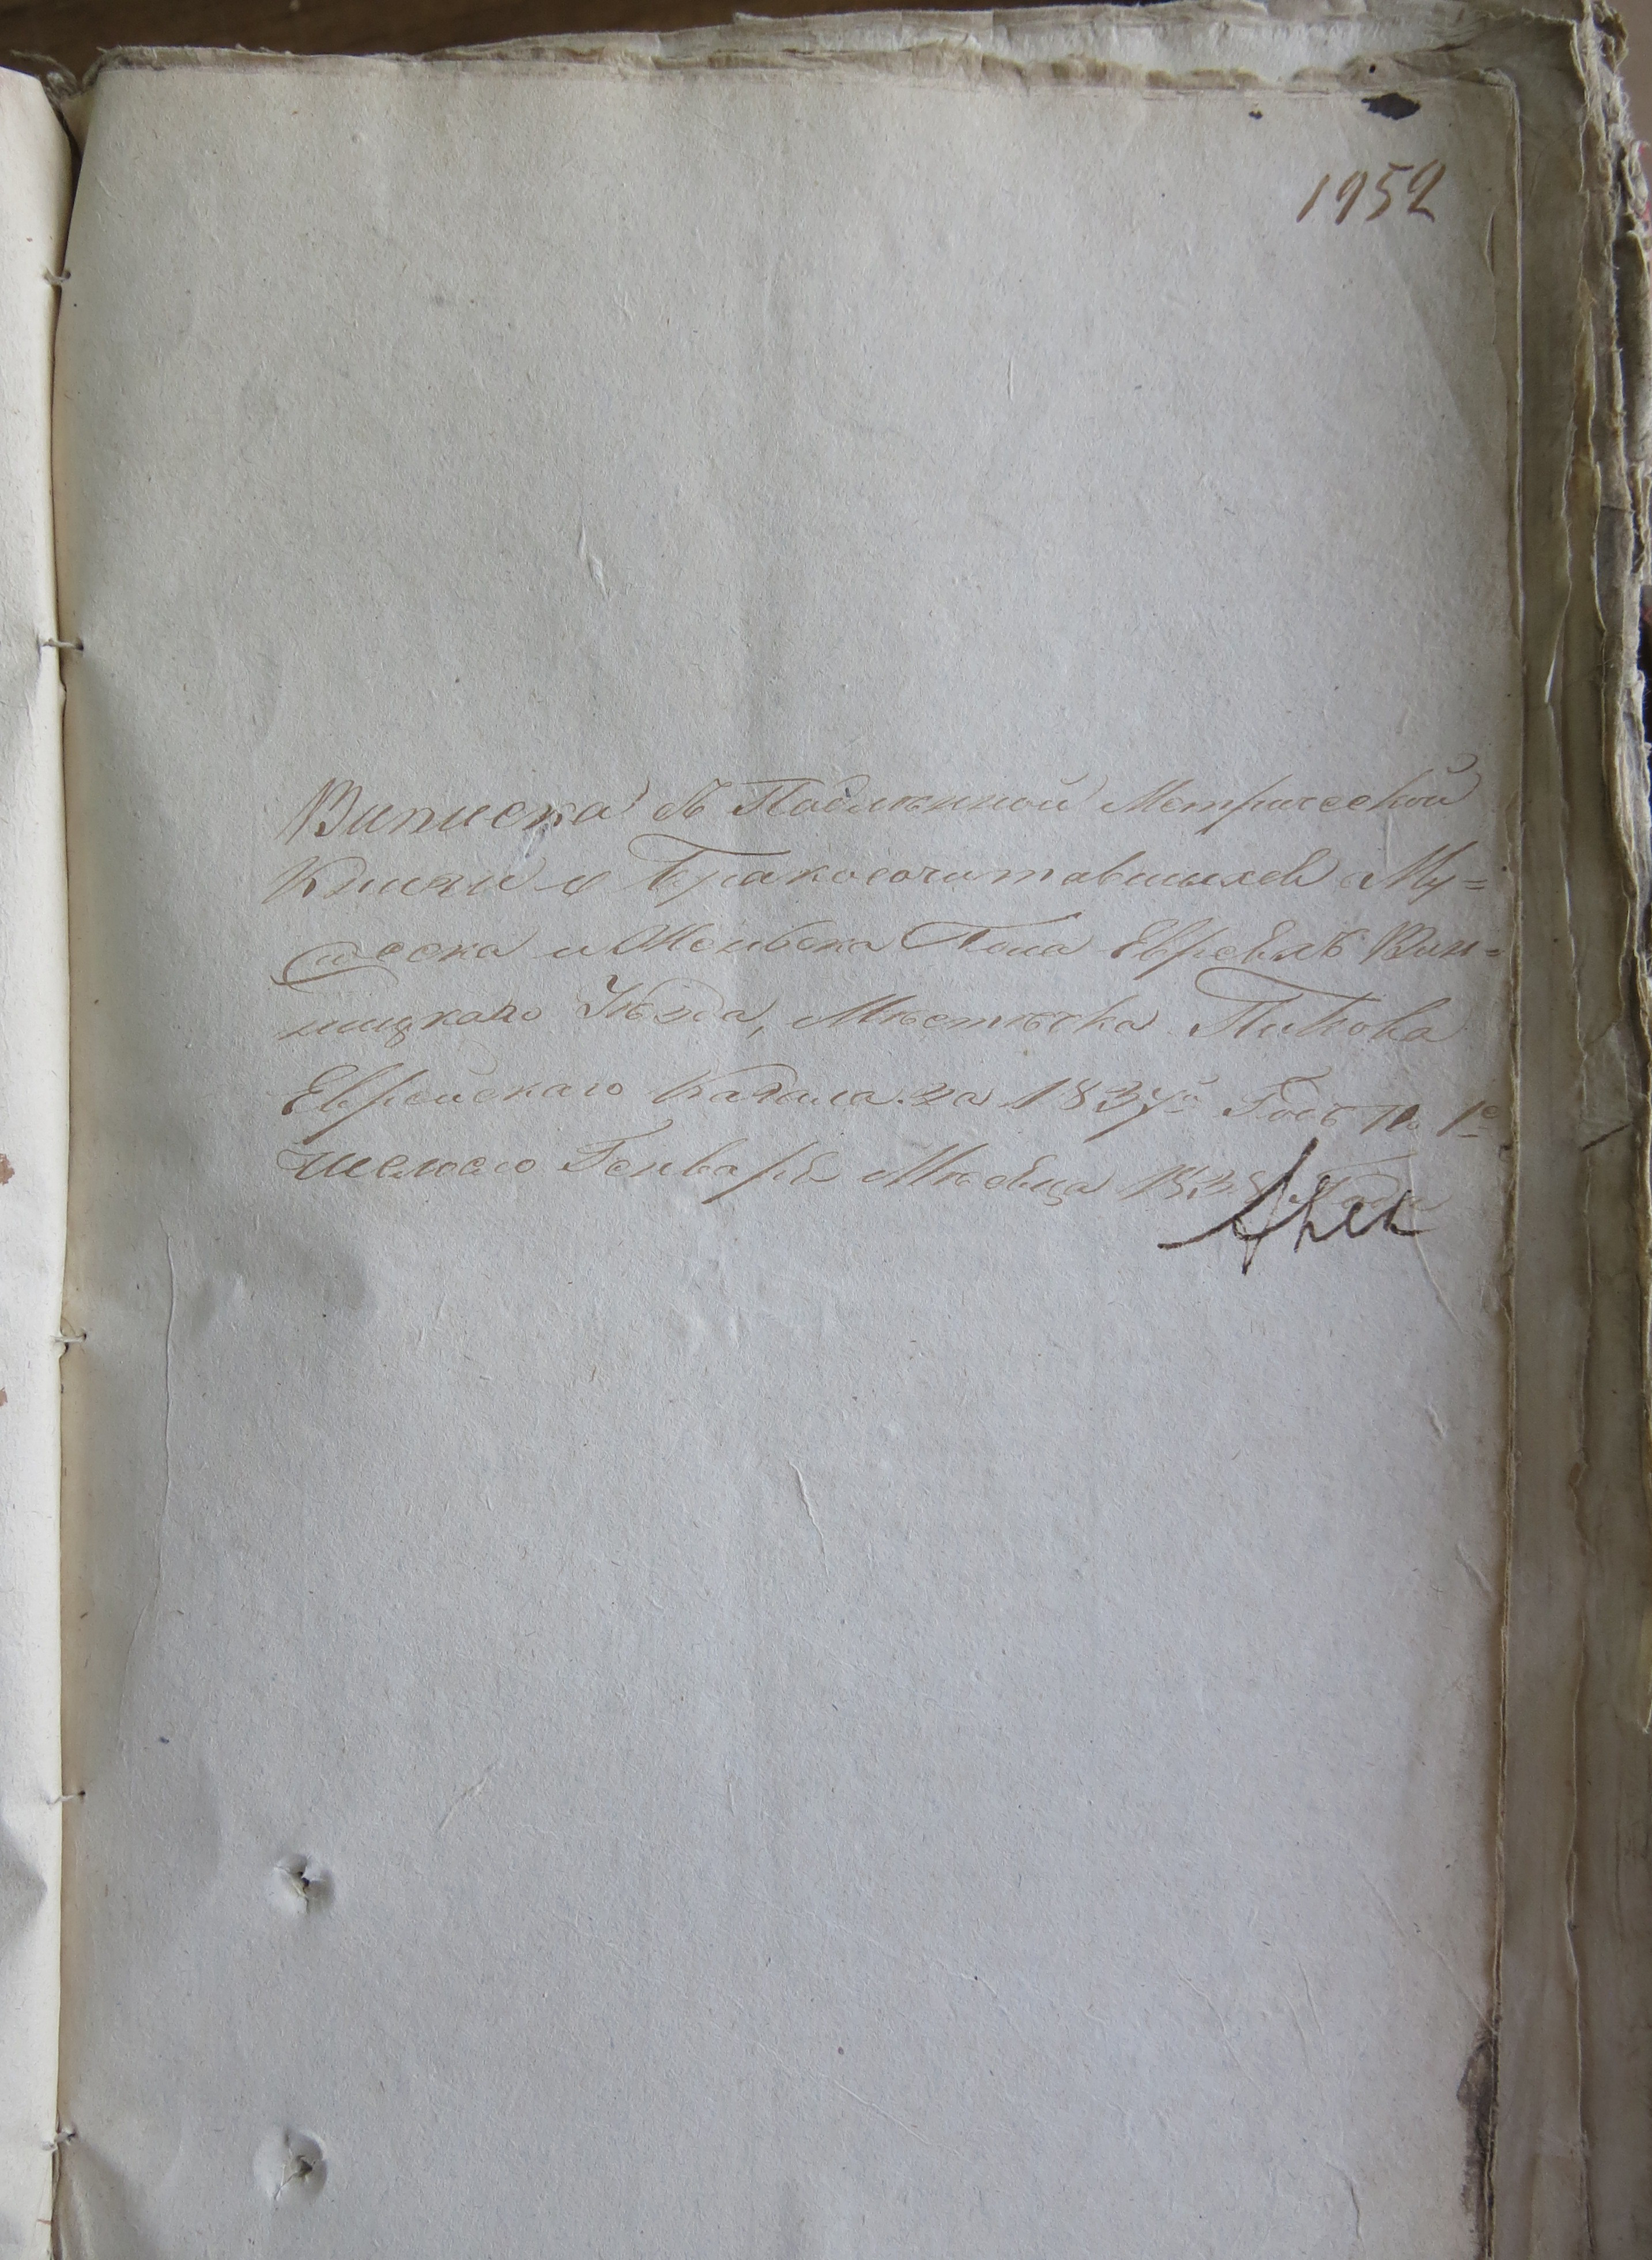 1952
Виписка съ Подлѣнной Метрической
Книги о Бракосочитавшихся Му=
жеска и Женьска Пола Евреяхъ Вин=
ницкаго Уѣзда, Мѣстѣчка Пикова
Еврейскаго Кагала за 1837й Годъ По 1е
Число Генваря Мѣсяца 1838 Года